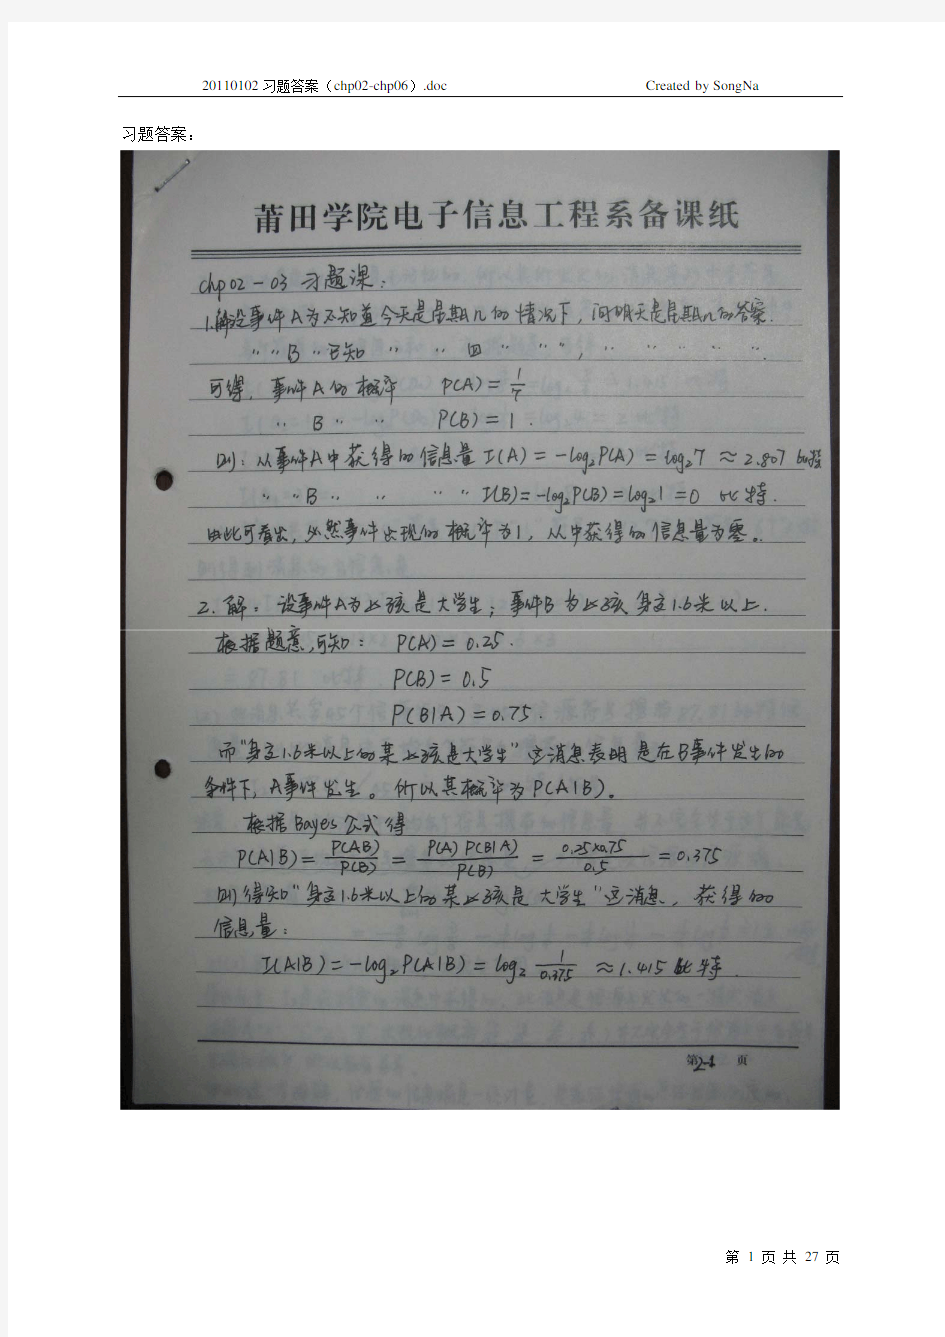 20110102 习题答案（chp02-chp06）.doc Created by SongNa
习题答案：
莆田学院电子信息工程系备课纸
chp02-03 习题课：
1.解设事件A为不知道今天是星期几的情况下，问明天是星期几的答案.
〃 〃 B 〃 已知 〃 〃 四 〃 〃 〃， 〃 〃 〃 〃 〃.
可得，事件A的概率 P(A)=1/7
〃 B 〃 〃 P(B)=1.
则：从事件A中获得的信息量 I(A)=-log₂P(A)=log₂7≈2.807 比特
〃 〃 B 〃 〃 〃 〃 I(B)=-log₂P(B)=log₂1=0 比特.
由此可看出，必然事件出现的概率为1，从中获得的信息量为零。
2. 解：设事件A为女孩是大学生；事件B为女孩身高1.6米以上.
根据题意，可知：P(A)=0.25.
P(B)=0.5
P(B|A)=0.75.
而“身高1.6米以上的某女孩是大学生”这消息表明是在B事件发生的
条件下，A事件发生。所以其概率为P(A|B)。
根据Bayes公式得
P(A|B)=P(AB)/P(B)=P(A)P(B|A)/P(B)=0.25×0.75/0.5=0.375
则得知“身高1.6米以上的某女孩是大学生”这消息，获得的
信息量：
I(A|B)=-log₂P(A|B)=log₂ 1/0.375≈1.415 比特.
第2-1页
第 1 页 共 27 页